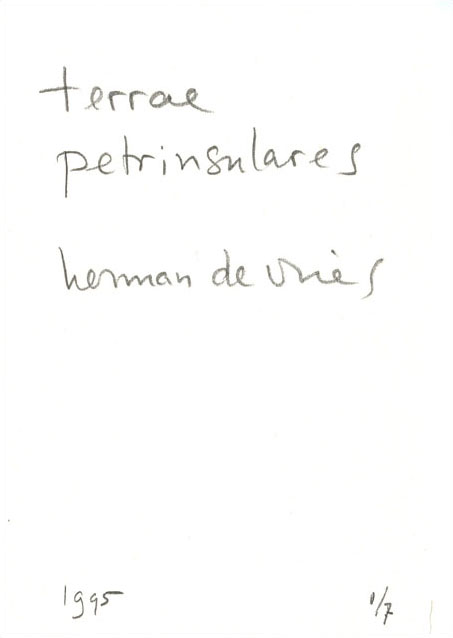 terrae
petrinsulares
herman de vries
1995 1/7